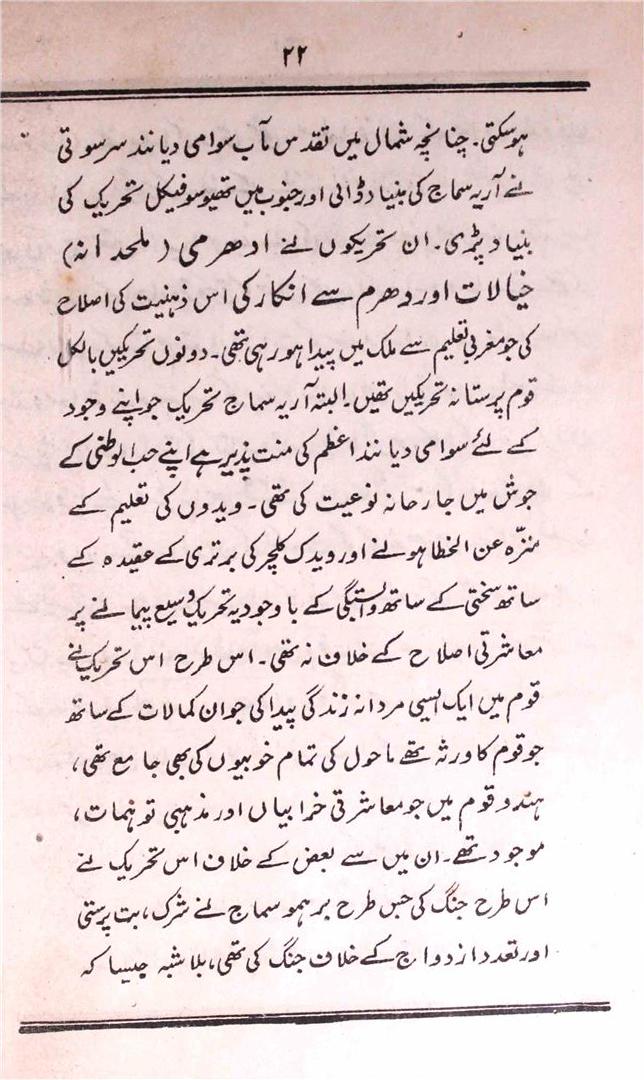 ۲۲
ہوسکتی۔ چنانچہ شمال میں تقدس مآب سوامی دیانند سرسوتی
نے آریہ سماج کی بنیاد ڈالی اور جنوب میں تھیوسوفیکل تحریک کی
بنیاد پڑی۔ ان تحریکوں نے ادھرمی (ملحدانہ)
خیالات اور دھرم سے انکار کی اس ذہنیت کی اصلاح
کی جو مغربی تعلیم سے ملک میں پیدا ہورہی تھی۔ دونوں تحریکیں بالکل
قوم پرستانہ تحریکیں تھیں۔ البتہ آریہ سماج تحریک جو اپنے وجود
کے لئے سوامی دیانند اعظم کی منت پذیر ہے اپنے حب الوطنی کے
جوش میں جارحانہ نوعیت کی تھی۔ ویدوں کی تعلیم کے
منزّہ عن الخطا ہونے اور ویدک کلچر کی برتری کے عقیدہ کے
ساتھ سختی کے ساتھ وابستگی کے باوجود یہ تحریک وسیع پیمانے پر
معاشرتی اصلاح کے خلاف نہ تھی۔ اس طرح اس تحریک نے
قوم میں ایک ایسی مردانہ زندگی پیدا کی جو ان کمالات کے ساتھ
جو قوم کا ورثہ تھے ماحول کی تمام خوبیوں کی بھی جامع تھی،
ہندو قوم میں جو معاشرتی خرابیاں اور مذہبی توہمات،
موجود تھے۔ ان میں سے بعض کے خلاف اس تحریک نے
اس طرح جنگ کی جس طرح برہمو سماج نے شرک، بت پرستی
اور تعدد ازدواج کے خلاف جنگ کی تھی، بلا شبہ جیسا کہ